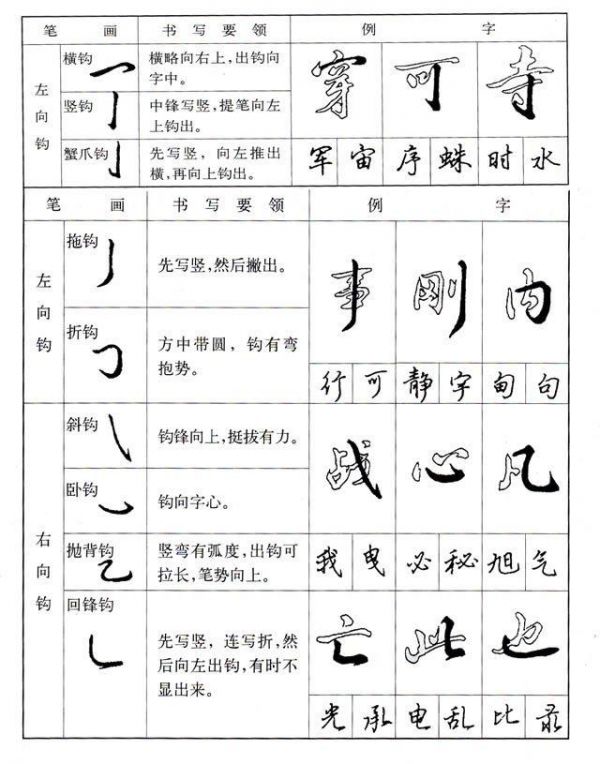 笔 画 书写要领 例 字
左向钩
横钩
横略向右上，出钩向
字中。
竖钩
中锋写竖，提笔向左
上钩出。
蟹爪钩
先写竖，向左推出
横，再向上钩出。
穿 可 寺
军 宙 序 蛛 时 水
笔 画 书写要领 例 字
左向钩
拖钩
先写竖，然后撇出。
折钩
方中带圆，钩有弯
抱势。
事 刚 内
行 可 静 字 甸 句
右向钩
斜钩
钩锋向上，挺拔有力。
卧钩
钩向字心。
战 心 凡
抛背钩
竖弯有弧度，出钩可
拉长，笔势向上。
我 曳 必 秘 旭 气
回锋钩
先写竖，连写折，然
后向左出钩，有时不
显出来。
亡 此 也
光 承 电 乱 比